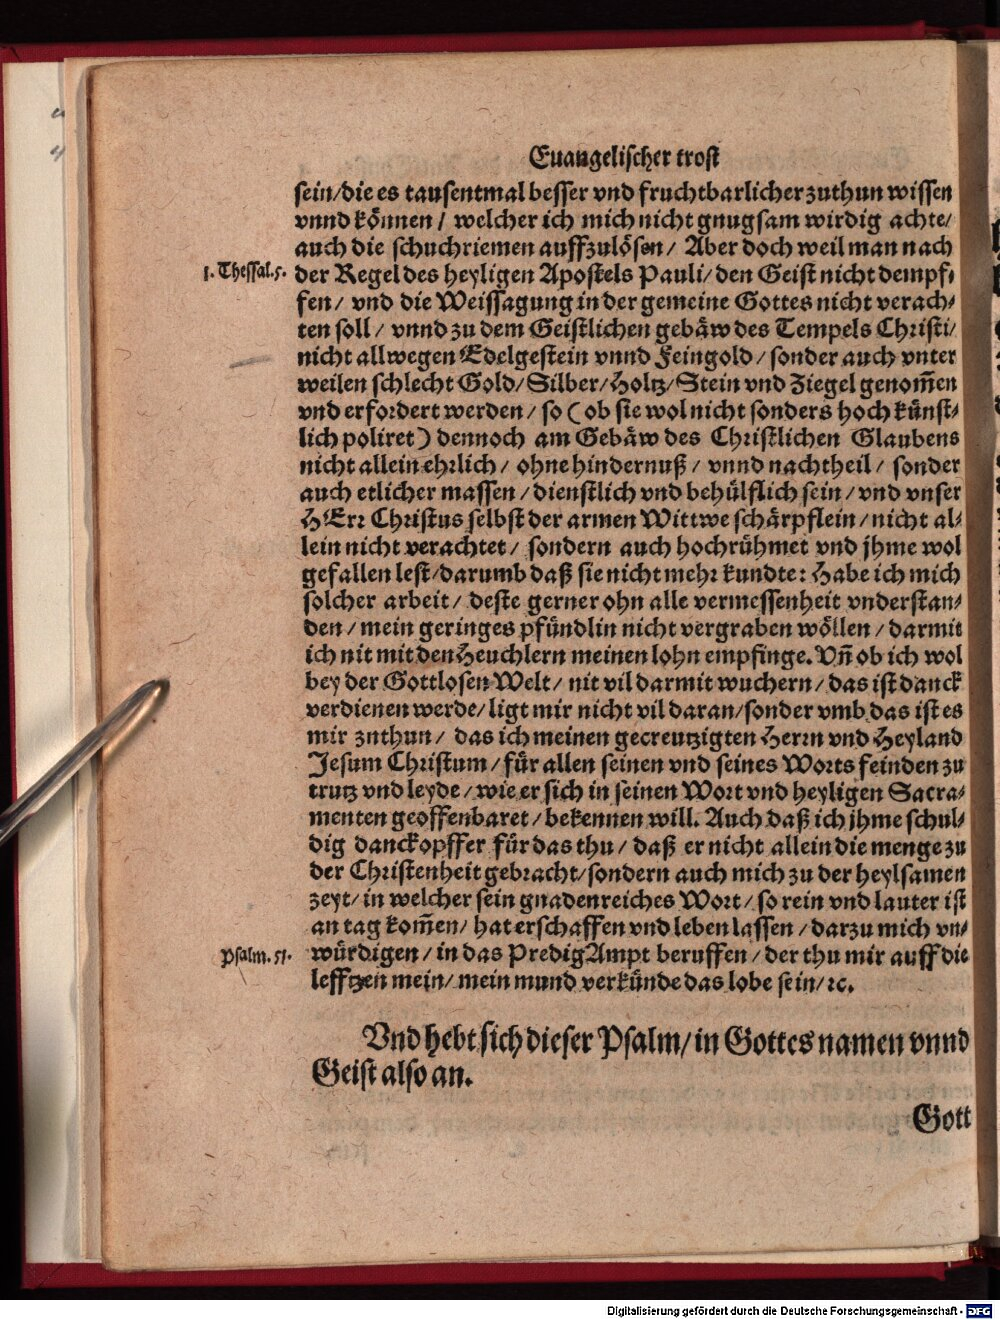 Euangelischer trost
sein/die es tausentmal besser vnd fruchtbarlicher zuthun wissen
vnnd können / welcher ich mich nicht gnugsam wirdig achte/
auch die schuchriemen auffzulösen/ Aber doch weil man nach
1. Thessal. 5.
der Regel des heyligen Apostels Pauli/ den Geist nicht dempf-
fen/ vnd die Weissagung in der gemeine Gottes nicht verach-
ten soll / vnnd zu dem Geistlichen gebäw des Tempels Christi/
nicht allwegen Edelgestein vnnd Feingold / sonder auch vnter
weilen schlecht Gold/ Silber/ Holtz/ Stein vnd Ziegel genom̄en
vnd erfordert werden / so ( ob sie wol nicht sonders hoch künst-
lich poliret ) dennoch am Gebäw des Christlichen Glaubens
nicht allein ehrlich / ohne hindernuß / vnnd nachtheil / sonder
auch etlicher massen / dienstlich vnd behülflich sein / vnd vnser
HErr Christus selbst der armen Wittwe schärpflein / nicht al-
lein nicht verachtet / sondern auch hochrühmet vnd jhme wol
gefallen lest/ darumb daß sie nicht mehr kundte: Habe ich mich
solcher arbeit / deste gerner ohn alle vermessenheit vnderstan-
den / mein geringes pfündlin nicht vergraben wöllen / darmit
ich nit mit den Heuchlern meinen lohn empfinge. Vn̄ ob ich wol
bey der Gottlosen Welt / nit vil darmit wuchern / das ist danck
verdienen werde/ ligt mir nicht vil daran/ sonder vmb das ist es
mir znthun / das ich meinen gecreutzigten Herrn vnd Heyland
Jesum Christum / für allen seinen vnd seines Worts feinden zu
trutz vnd leyde / wie er sich in seinen Wort vnd heyligen Sacra-
menten geoffenbaret / bekennen will. Auch daß ich jhme schul-
dig danckopffer für das thu / daß er nicht allein die menge zu
der Christenheit gebracht/ sondern auch mich zu der heylsamen
zeyt/ in welcher sein gnadenreiches Wort / so rein vnd lauter ist
an tag kom̄en/ hat erschaffen vnd leben lassen / darzu mich vn-
Psalm. 51.
würdigen / in das Predig Ampt beruffen / der thu mir auff die
lefftzen mein/ mein mund verkünde das lobe sein/ ꝛc.
Vnd hebt sich dieser Psalm/ in Gottes namen vnnd
Geist also an.
Gott
Digitalisierung gefördert durch die Deutsche Forschungsgemeinschaft - DFG